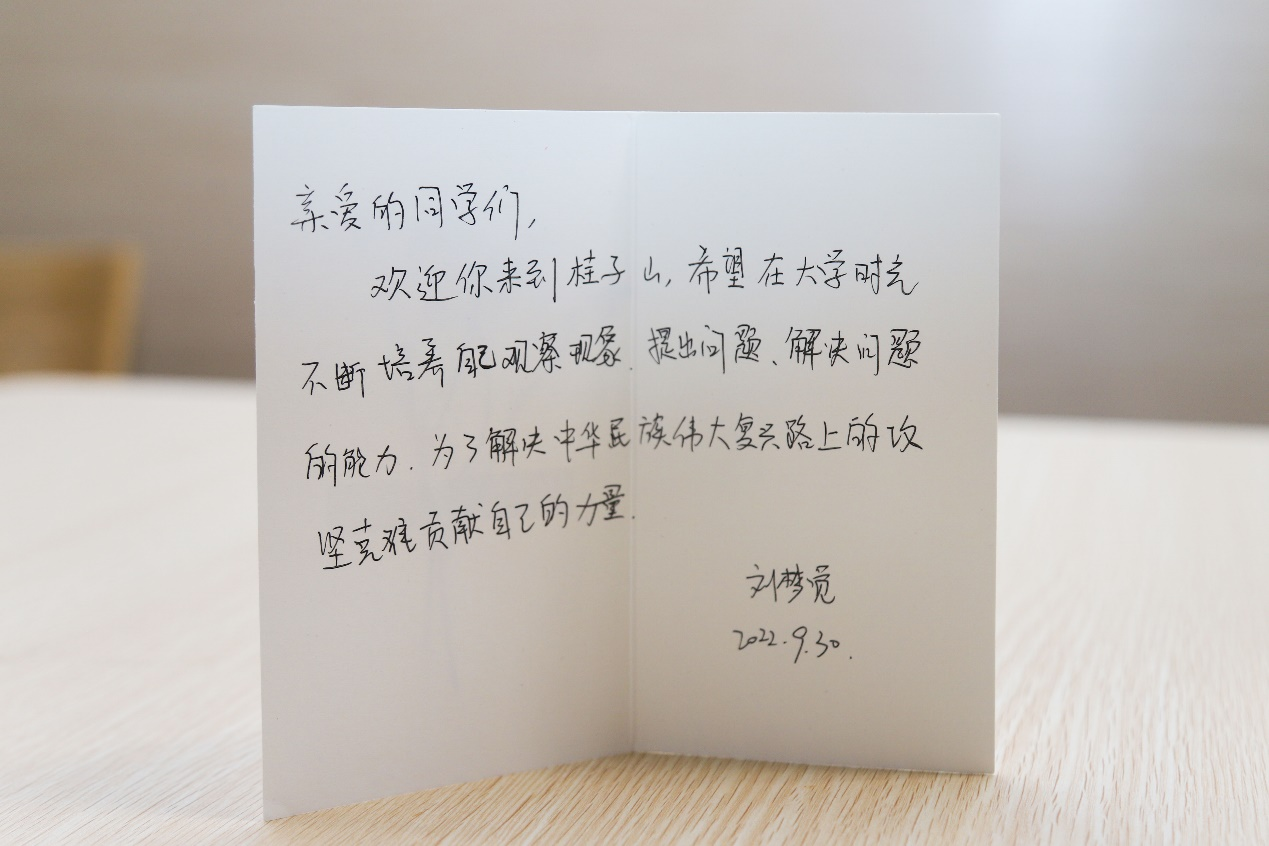 亲爱的同学们，
欢迎你来到桂子山，希望在大学时光
不断培养自己观察现象、提出问题、解决问题
的能力．为了解决中华民族伟大复兴路上的攻
坚克难贡献自己的力量．
刘梦觉
2022.9.30.